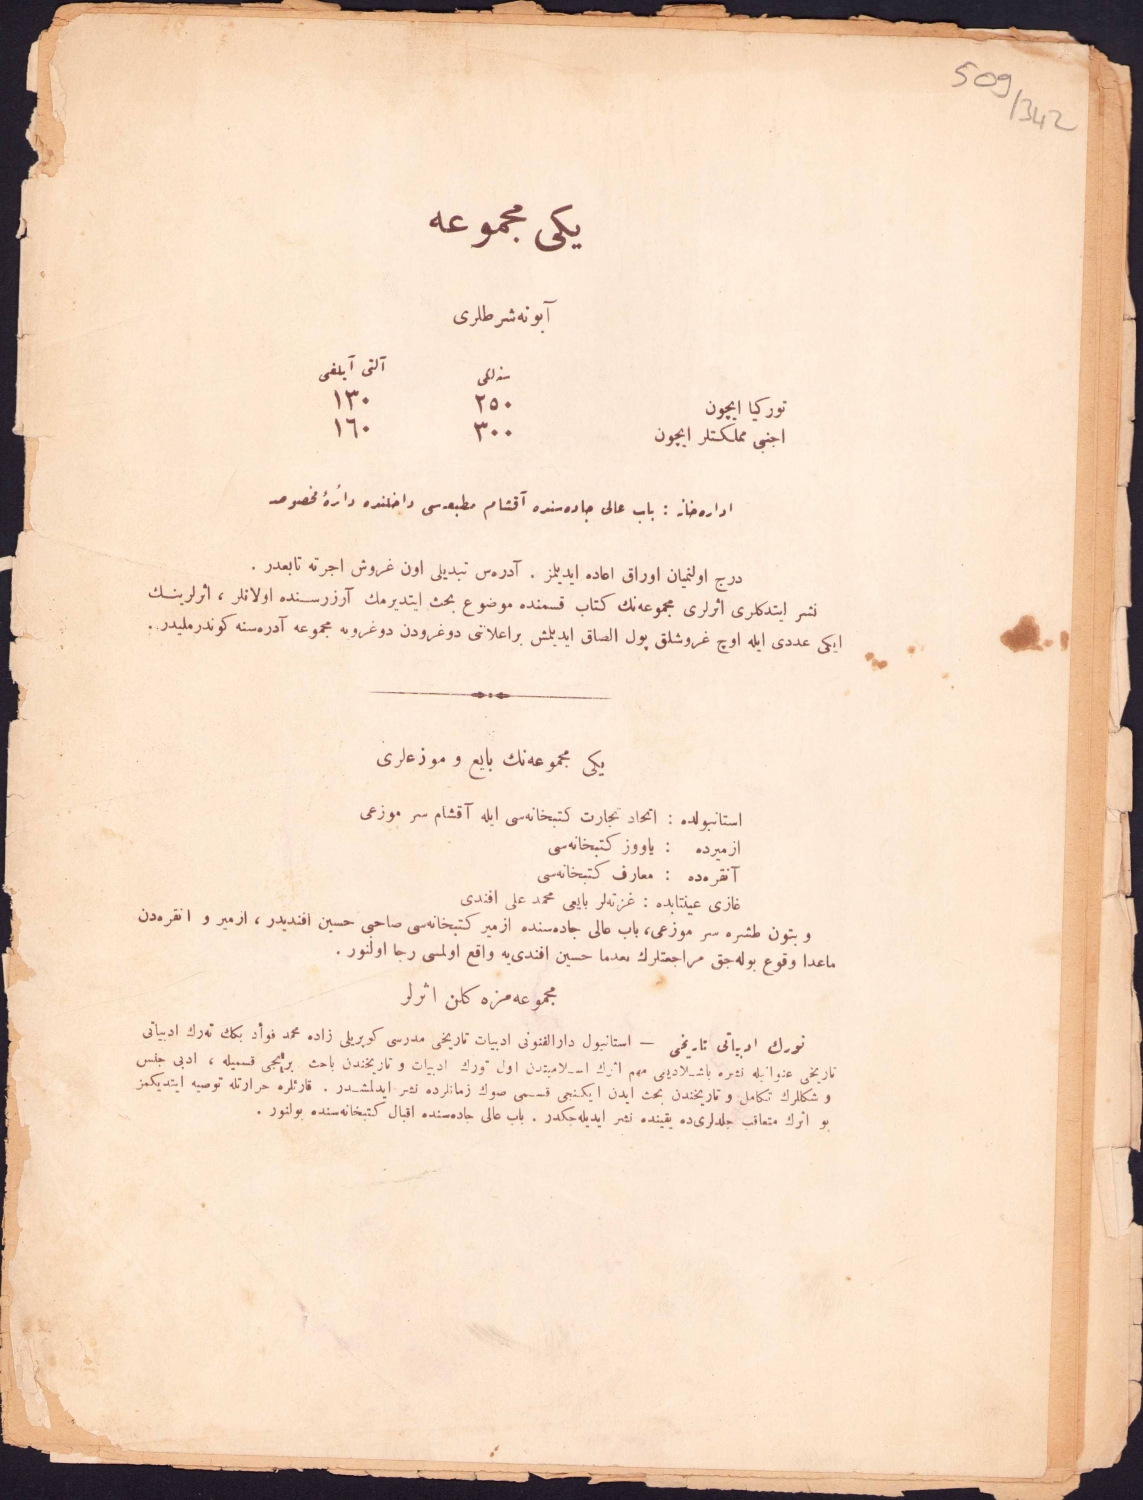 509/342
یکی مجموعه
آبونه شرطلری
سنه‌لکی آلتی آیلغی
تورکیا ایچون ٢٥٠ ١٣٠
اجنبی مملکتلر ایچون ٣٠٠ ١٦٠
اداره‌خانه : باب عالی جاده‌سنده آقشام مطبعه‌سی داخلنده دائرهٔ مخصوصه
درج اولنمیان اوراق اعاده ایدیلمز . آدره‌س تبدیلی اون غروش اجرته تابعدر .
نشر ایتدکلری اثرلری مجموعه‌نك کتاب قسمنده موضوع بحث ایتدیرمك آرزوسنده اولانلر ، اثرلرینـك
ایکی عددی ایله اوچ غروشلق پول الصاق ایدیلمش براعلانی دوغرودن دوغرویه مجموعه آدره‌سنه کوندرملیدر .
یکی مجموعه‌نك بایع و موزعلری
استانبولده : اتحاد تجارت کتبخانه‌سی ایله آقشام سر موزعی
ازمیرده : یاووز کتبخانه‌سی
آنقره‌ده : معارف کتبخانه‌سی
غازی عینتابده : غزته‌لر بایعی محمد علی افندی
و بتون طشره سر موزعی، باب عالی جاده‌سنده ازمیر کتبخانه‌سی صاحبی حسین افندیدر ، ازمیر و انقره‌دن
ماعدا وقوع بوله‌جق مراجعتلرك بعدما حسین افندی‌یه واقع اولمسی رجا اولنور .
مجموعه‌مزه کلن اثرلر
تورك ادبیاتی تاریخی — استانبول دارالفنونی ادبیات تاریخی مدرسی کوپریلی زاده محمد فوأد بكك تورك ادبیاتی
تاریخی عنوانیله نشره باشـلادیغی مهم اثرك اسـلامیتدن اول تورك ادبیات و تاریخندن باحث برنجی قسمیله ، ادبی جنس
و شکللرك تکامل و تاریخندن بحث ایدن ایکنجی قسـمی صوك زمانلرده نشر ایدلمشـدر . قارئلره حرارتله توصیه ایتدیکمز
بو اثرك متعاقب جلدلری‌ده یقینده نشر ایدیله‌جکدر . باب عالی جاده‌سنده اقبال کتبخانه‌سنده بولنور .